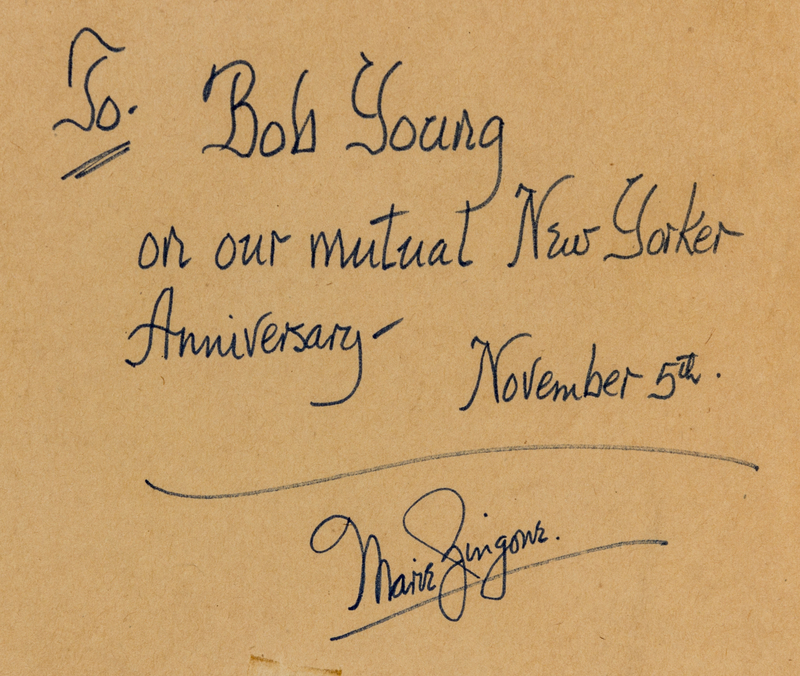 To. Bob Young
on our mutual New Yorker
Anniversary –
November 5th.
Marie Zingone.